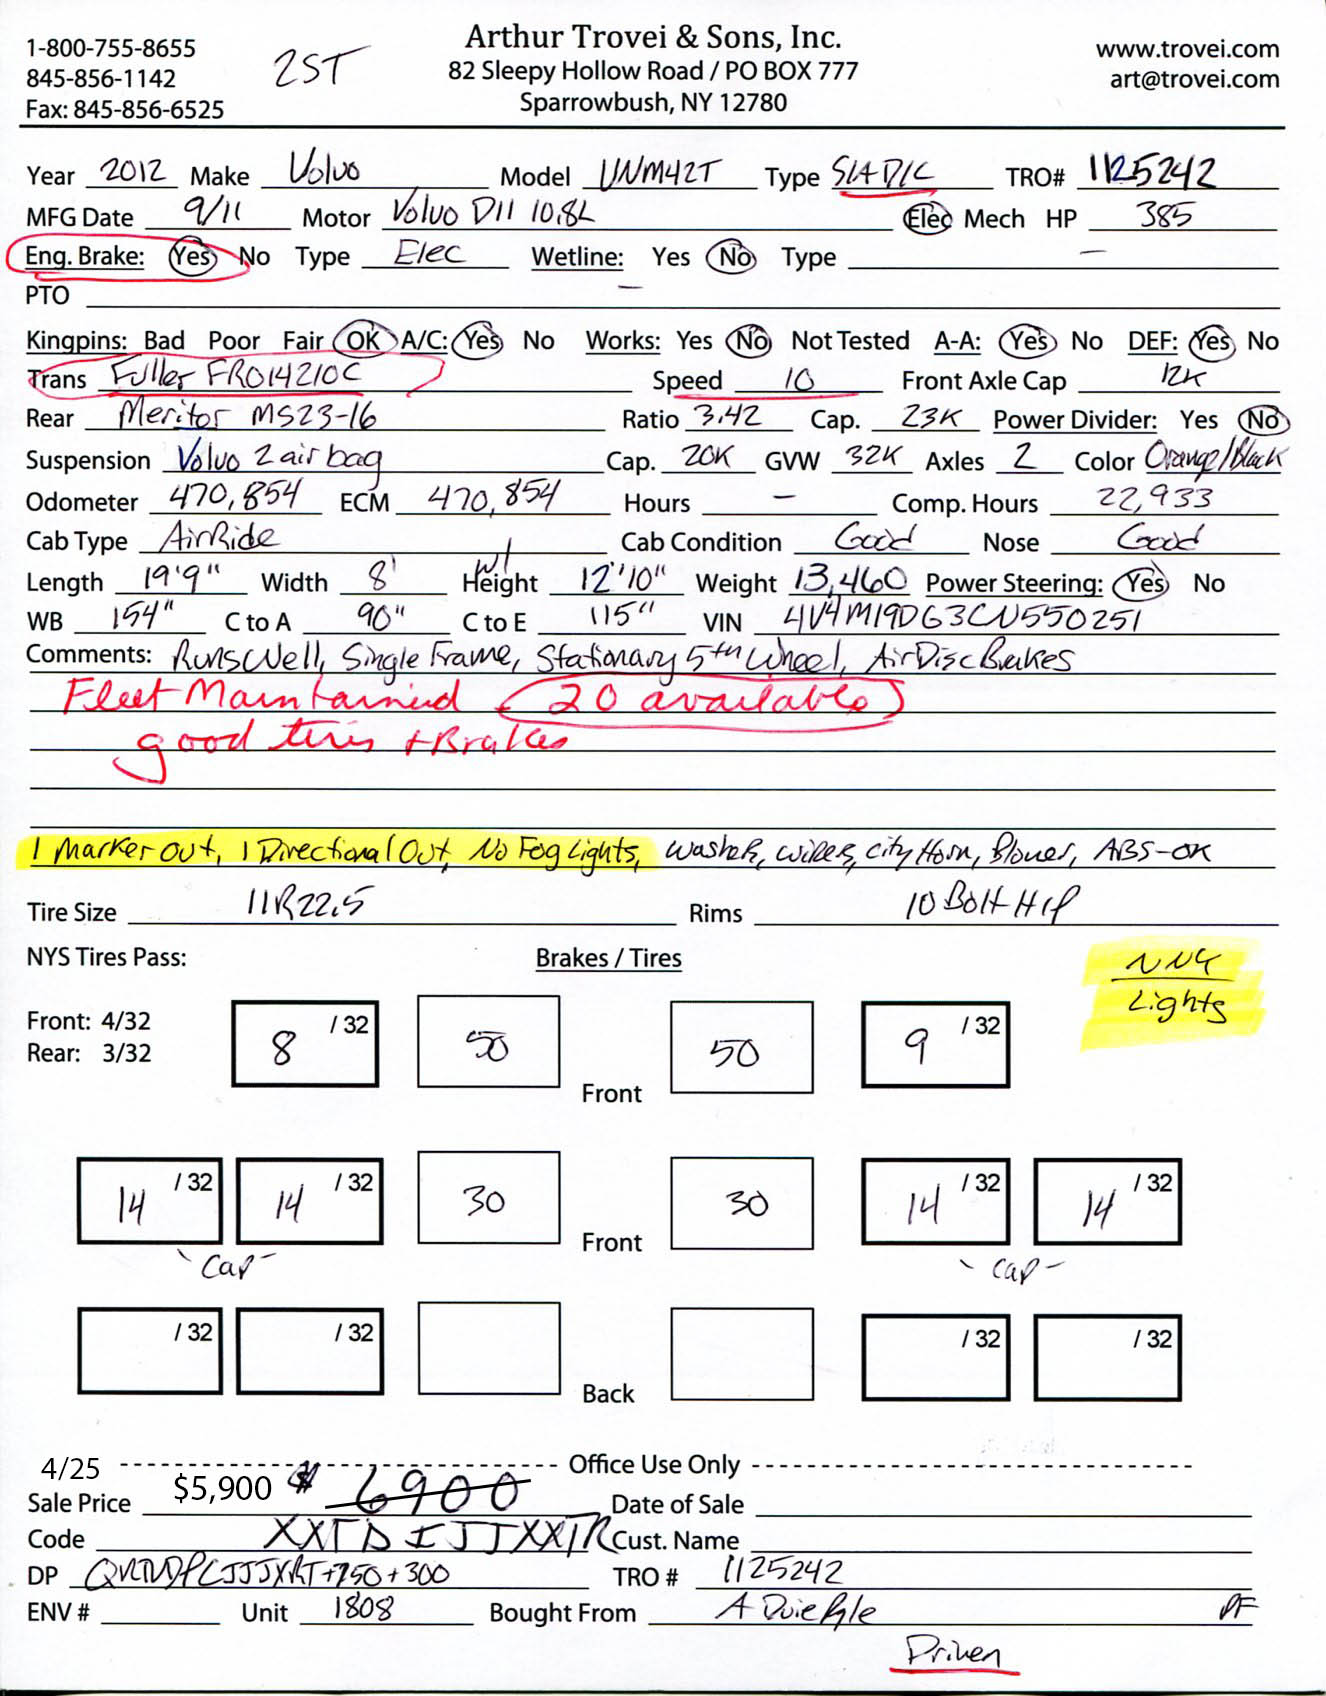 1-800-755-8655
845-856-1142
Fax: 845-856-6525
2ST
Arthur Trovei & Sons, Inc.
82 Sleepy Hollow Road / PO BOX 777
Sparrowbush, NY 12780
www.trovei.com
art@trovei.com
Year 2012 Make Volvo Model VNM42T Type S/A D/C TRO# 1125242
MFG Date 9/11 Motor Volvo D11 10.8L Elec Mech HP 385
Eng. Brake: Yes No Type Elec Wetline: Yes No Type —
PTO —
Kingpins: Bad Poor Fair OK A/C: Yes No Works: Yes No Not Tested A-A: Yes No DEF: Yes No
Trans Fuller FRO14210C Speed 10 Front Axle Cap 12K
Rear Meritor MS23-16 Ratio 3.42 Cap. 23K Power Divider: Yes No
Suspension Volvo 2 air bag Cap. 20K GVW 32K Axles 2 Color Orange/Black
Odometer 470,854 ECM 470,854 Hours — Comp. Hours 22,933
Cab Type AirRide Cab Condition Good Nose Good
Length 19'9" Width 8' w/ Height 12'10" Weight 13,460 Power Steering: Yes No
WB 154" C to A 90" C to E 115" VIN 4V4M19DG3CN550251
Comments: Runs Well, Single Frame, Stationary 5th Wheel, Air Disc Brakes
Fleet Maintained 20 available
good tires + Brakes
1 Marker out, 1 Directional Out, No Fog Lights, Washer, wiper, city Horn, Blower, ABS-OK
Tire Size 11R22.5 Rims 10 Bolt H P
NYS Tires Pass: Brakes / Tires
Lights
Front: 4/32
Rear: 3/32
8 / 32 50 Front 50 9 / 32
14 / 32 14 / 32 30 Front 30 14 / 32 14 / 32
Cap Cap
/ 32 / 32 Back / 32 / 32
4/25 Office Use Only
Sale Price $5,900 $ 6900 Date of Sale
Code XXTDIJJXXTR Cust. Name
DP +750+300 TRO # 1125242
ENV # Unit 1808 Bought From A Duie Pyle PF
Driven